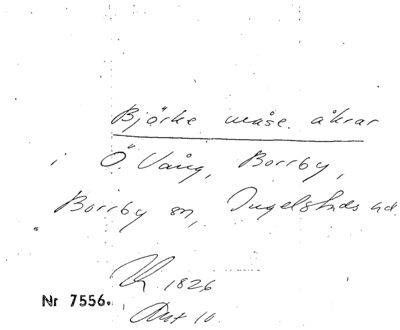 Björke måse. åkrar
i Ö. Vång, Borrby,
Borrby sn, Ingelstads hd.
1826
Nr 7556.
10.